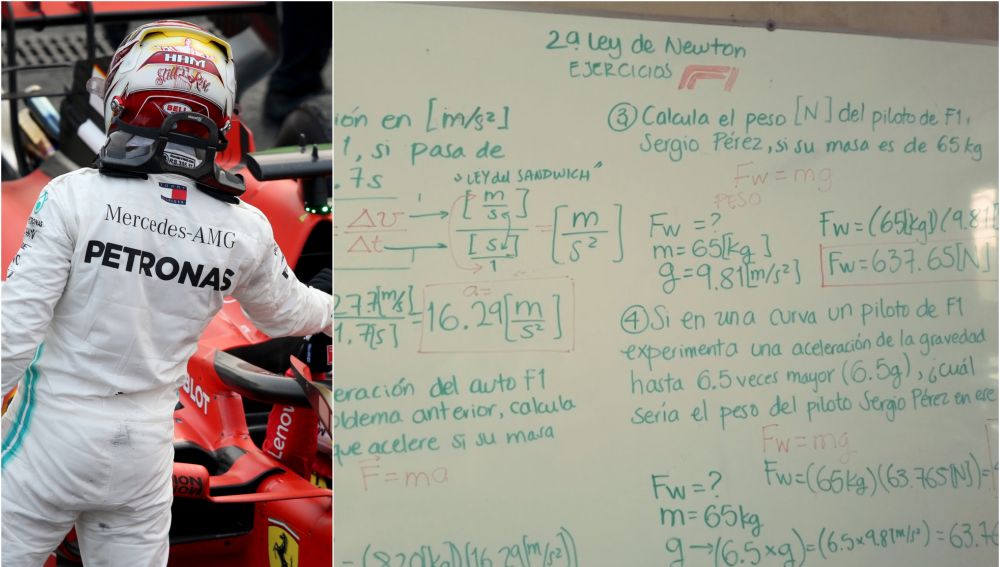 HAM
Still I Rise
BELL
TOMMY
HILFIGER
Mercedes-AMG
PETRONAS
Lenovo
Ferrari
2ª Ley de Newton
EJERCICIOS F1
ión en [m/s²]
1, si pasa de
.7s
Δv
Δt
"LEY del SANDWICH"
[m/sg]
[sg]/1
= [m/s²]
27.7[m/s]
1.7[s]
a=
16.29[m/s²]
eración del auto F1
blema anterior, calcula
que acelere si su masa
F=ma
=(820[kg])(16.29[m/s²])
③ Calcula el peso [N] del piloto de F1,
Sergio Pérez, si su masa es de 65kg
Fw=mg
PESO
Fw=?
m=65[kg]
g=9.81[m/s²]
Fw=(65[kg])(9.81
Fw=637.65[N]
④ Si en una curva un piloto de F1
experimenta una aceleración de la gravedad
hasta 6.5 veces mayor (6.5g), ¿cuál
sería el peso del piloto Sergio Pérez en ese
Fw=mg
Fw=?
m=65kg
Fw=(65kg)(63.765[N])=
g→(6.5xg)=(6.5x9.81m/s²)=63.76